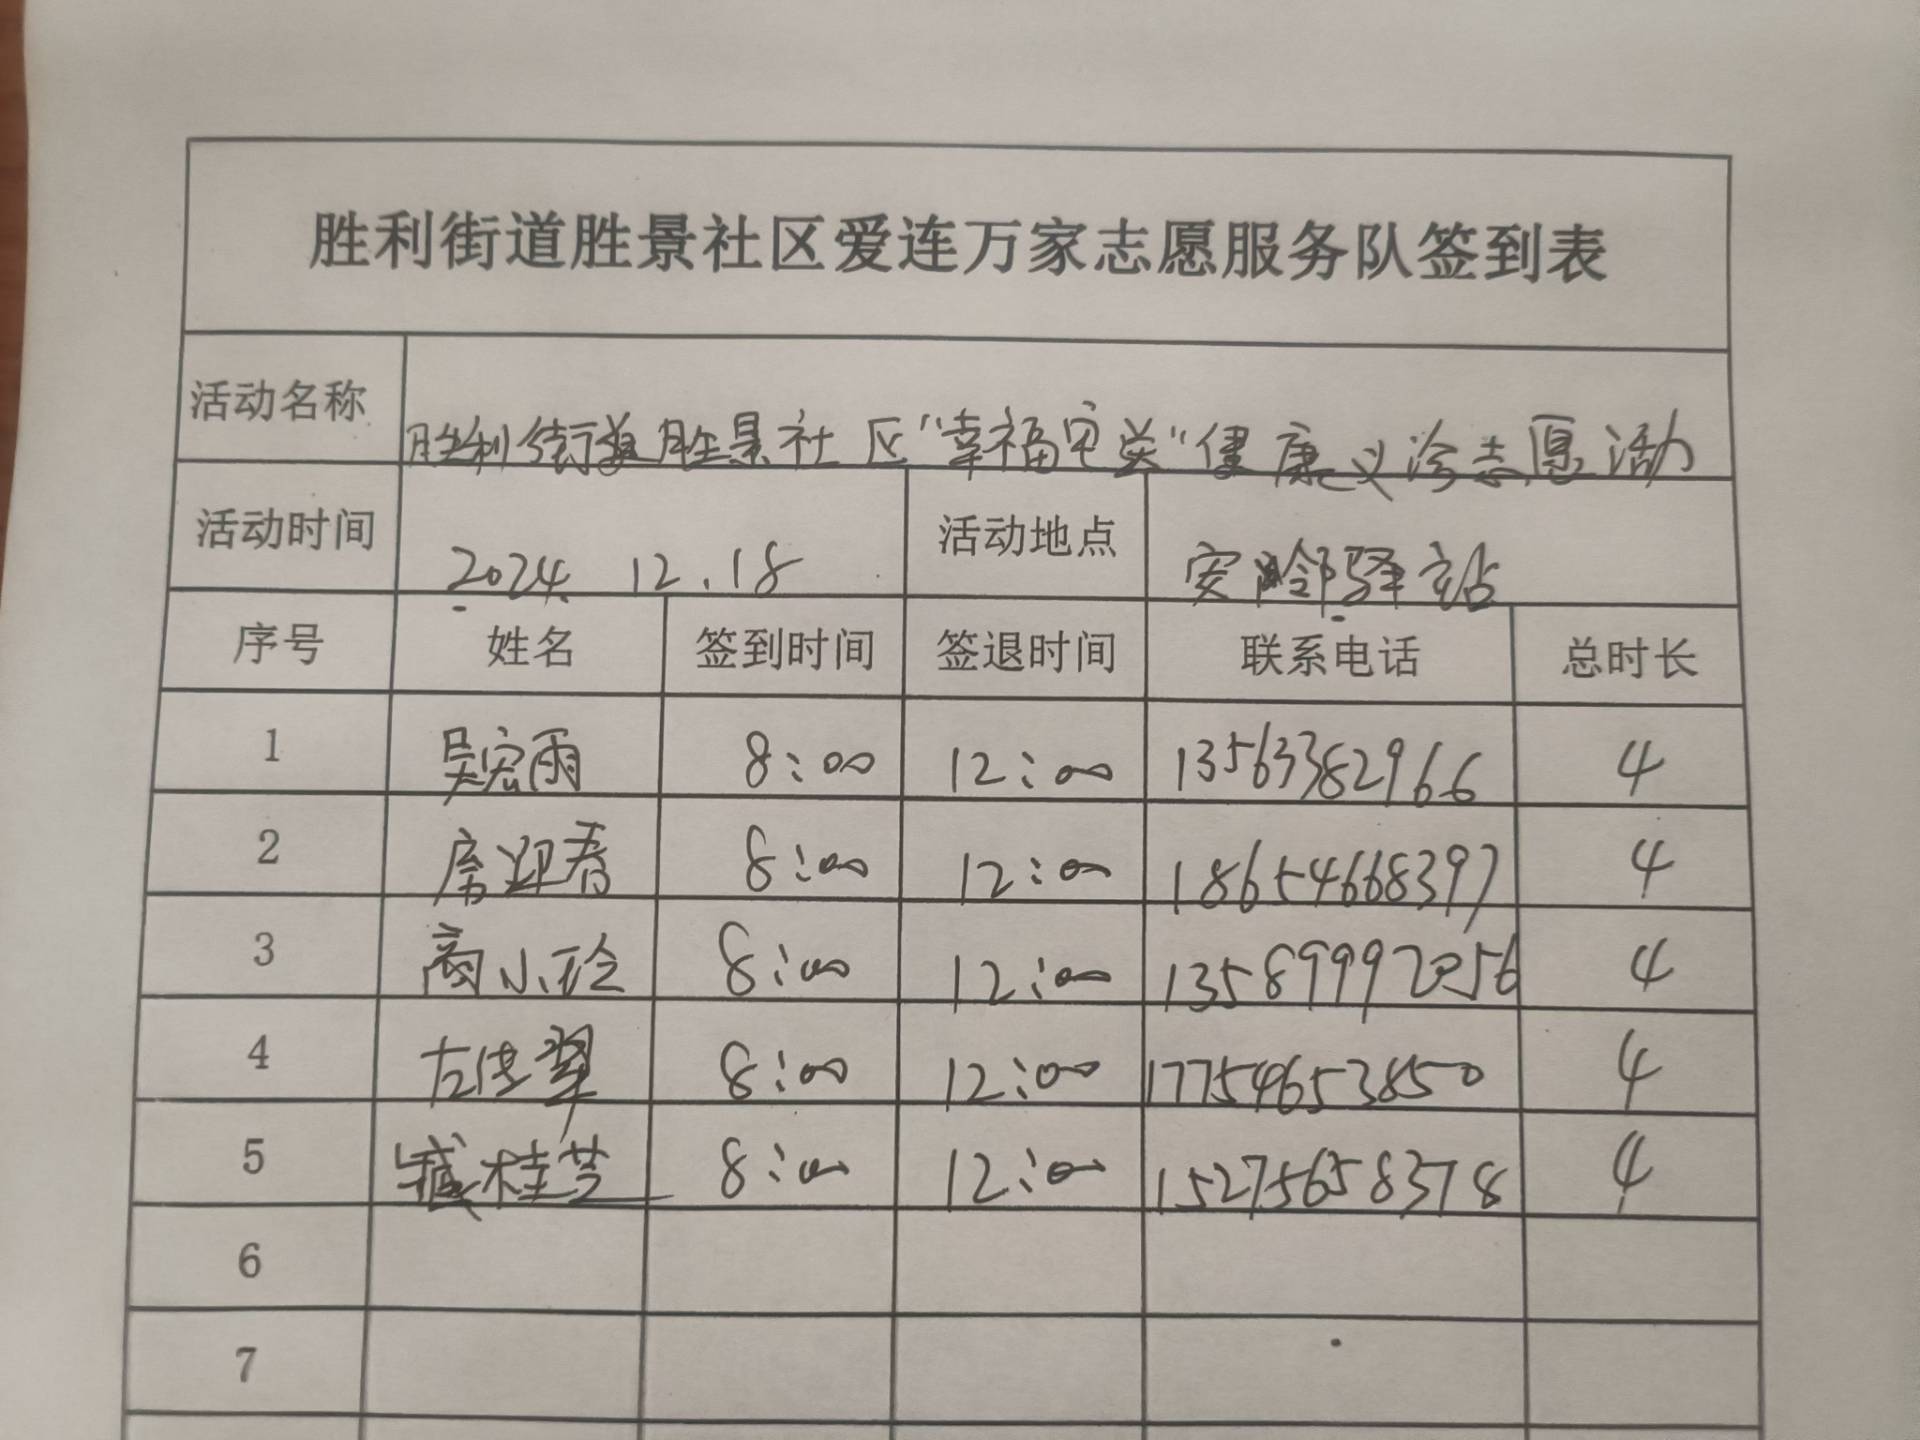 胜利街道胜景社区爱连万家志愿服务队签到表
活动名称 胜利街道胜景社区"幸福守益"健康义诊志愿活动
活动时间 2024.12.18 活动地点 安邻驿站
序号 姓名 签到时间 签退时间 联系电话 总时长
1 吴宏雨 8:00 12:00 13563382966 4
2 席迎春 8:00 12:00 18654668397 4
3 商小玲 8:00 12:00 13589997056 4
4 左佳翠 8:00 12:00 17754653850 4
5 臧桂芝 8:00 12:00 15275658378 4
6
7